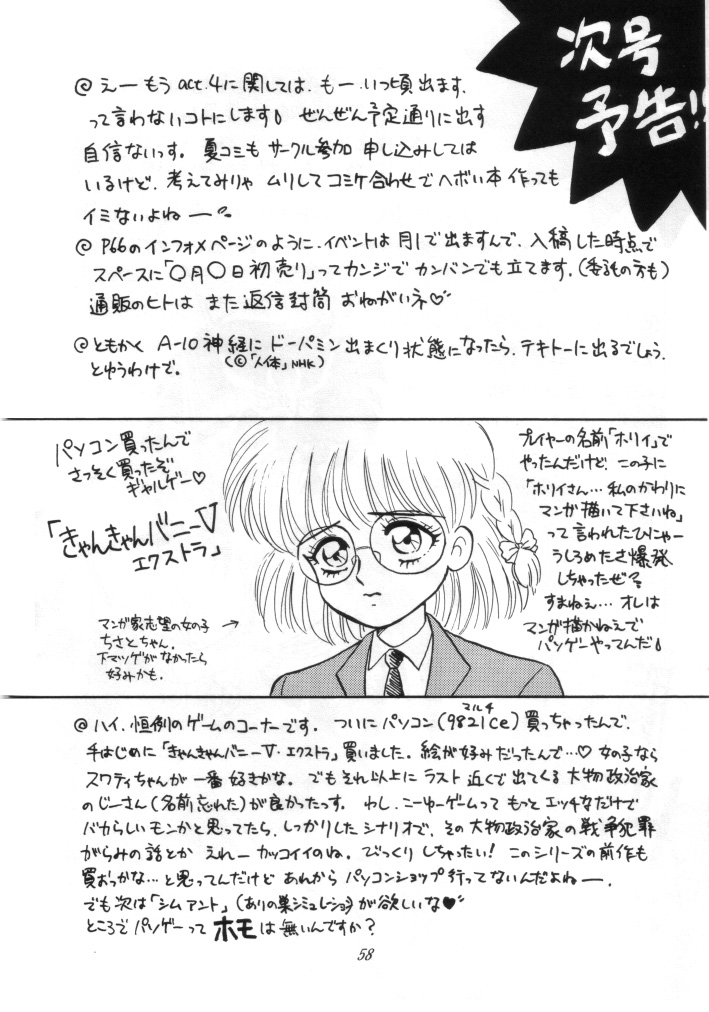 次号
予告!!
@ えー もう act.4に関しては、もー、いつ頃出ます、
って言わないコトにします。ぜんぜん予定通りに出す
自信ないっす。夏コミも サークル参加 申し込みしては
いるけど、考えてみりゃ ムリしてコミケ合わせでヘボい本 作っても
イミないよねー。
@ P66のインフォメページのように、イベントは 月1で出ますんで、入稿した時点で
スペースに「〇月〇日初売り」ってカンジで カンバンでも立てます。(委託の方も)
通販のヒトは また返信封筒 おねがいネ♡
@ ともかく A-10神経に ドーパミン 出まくり状態になったら、テキトーに出るでしょう。
(©「人体」NHK)
とゆうわけで。
パソコン買ったんで
さっそく買ったぞ
ギャルゲー♡
「きゃんきゃんバニーV
エクストラ」
マンガ家志望の女の子 →
ちさとちゃん。
下マツゲがなかったら
好みかも。
プレイヤーの名前「ホリイ」で
やったんだけど、この子に
「ホリイさん…私のかわりに
マンガ描いて下さいね」
って言われたひにゃー
うしろめたさ爆発
しちゃったぜ?
すまねえ…オレは
マンガ描かねえで
パソゲーやってんだ
@ ハイ、恒例のゲームのコーナーです。 ついに パソコン(9821Ce)買っちゃったんで、
マルチ
手はじめに「きゃんきゃんバニーV・エクストラ」買いました。絵が好みだったんで…♡ 女の子なら
スワティちゃんが 一番 好きかな。でもそれ以上に ラスト 近くで出てくる 大物政治家
のじーさん(名前忘れた)が良かったっす。 わし、こーゆーゲームって もっと エッチなだけで
バカらしいモンかと思ってたら、しっかりしたシナリオで、その大物政治家の戦争犯罪
がらみの話とか えれー カッコイイのね。びっくり しちゃったい! このシリーズの前作も
買おっかな…と思ってんだけど あれから パソコンショップ行ってないんだよねー。
でも次は「シムアント」(ありの巣シミュレーション)が欲しいな♥
ところで パソゲーって ホモ は 無いんですか?
58